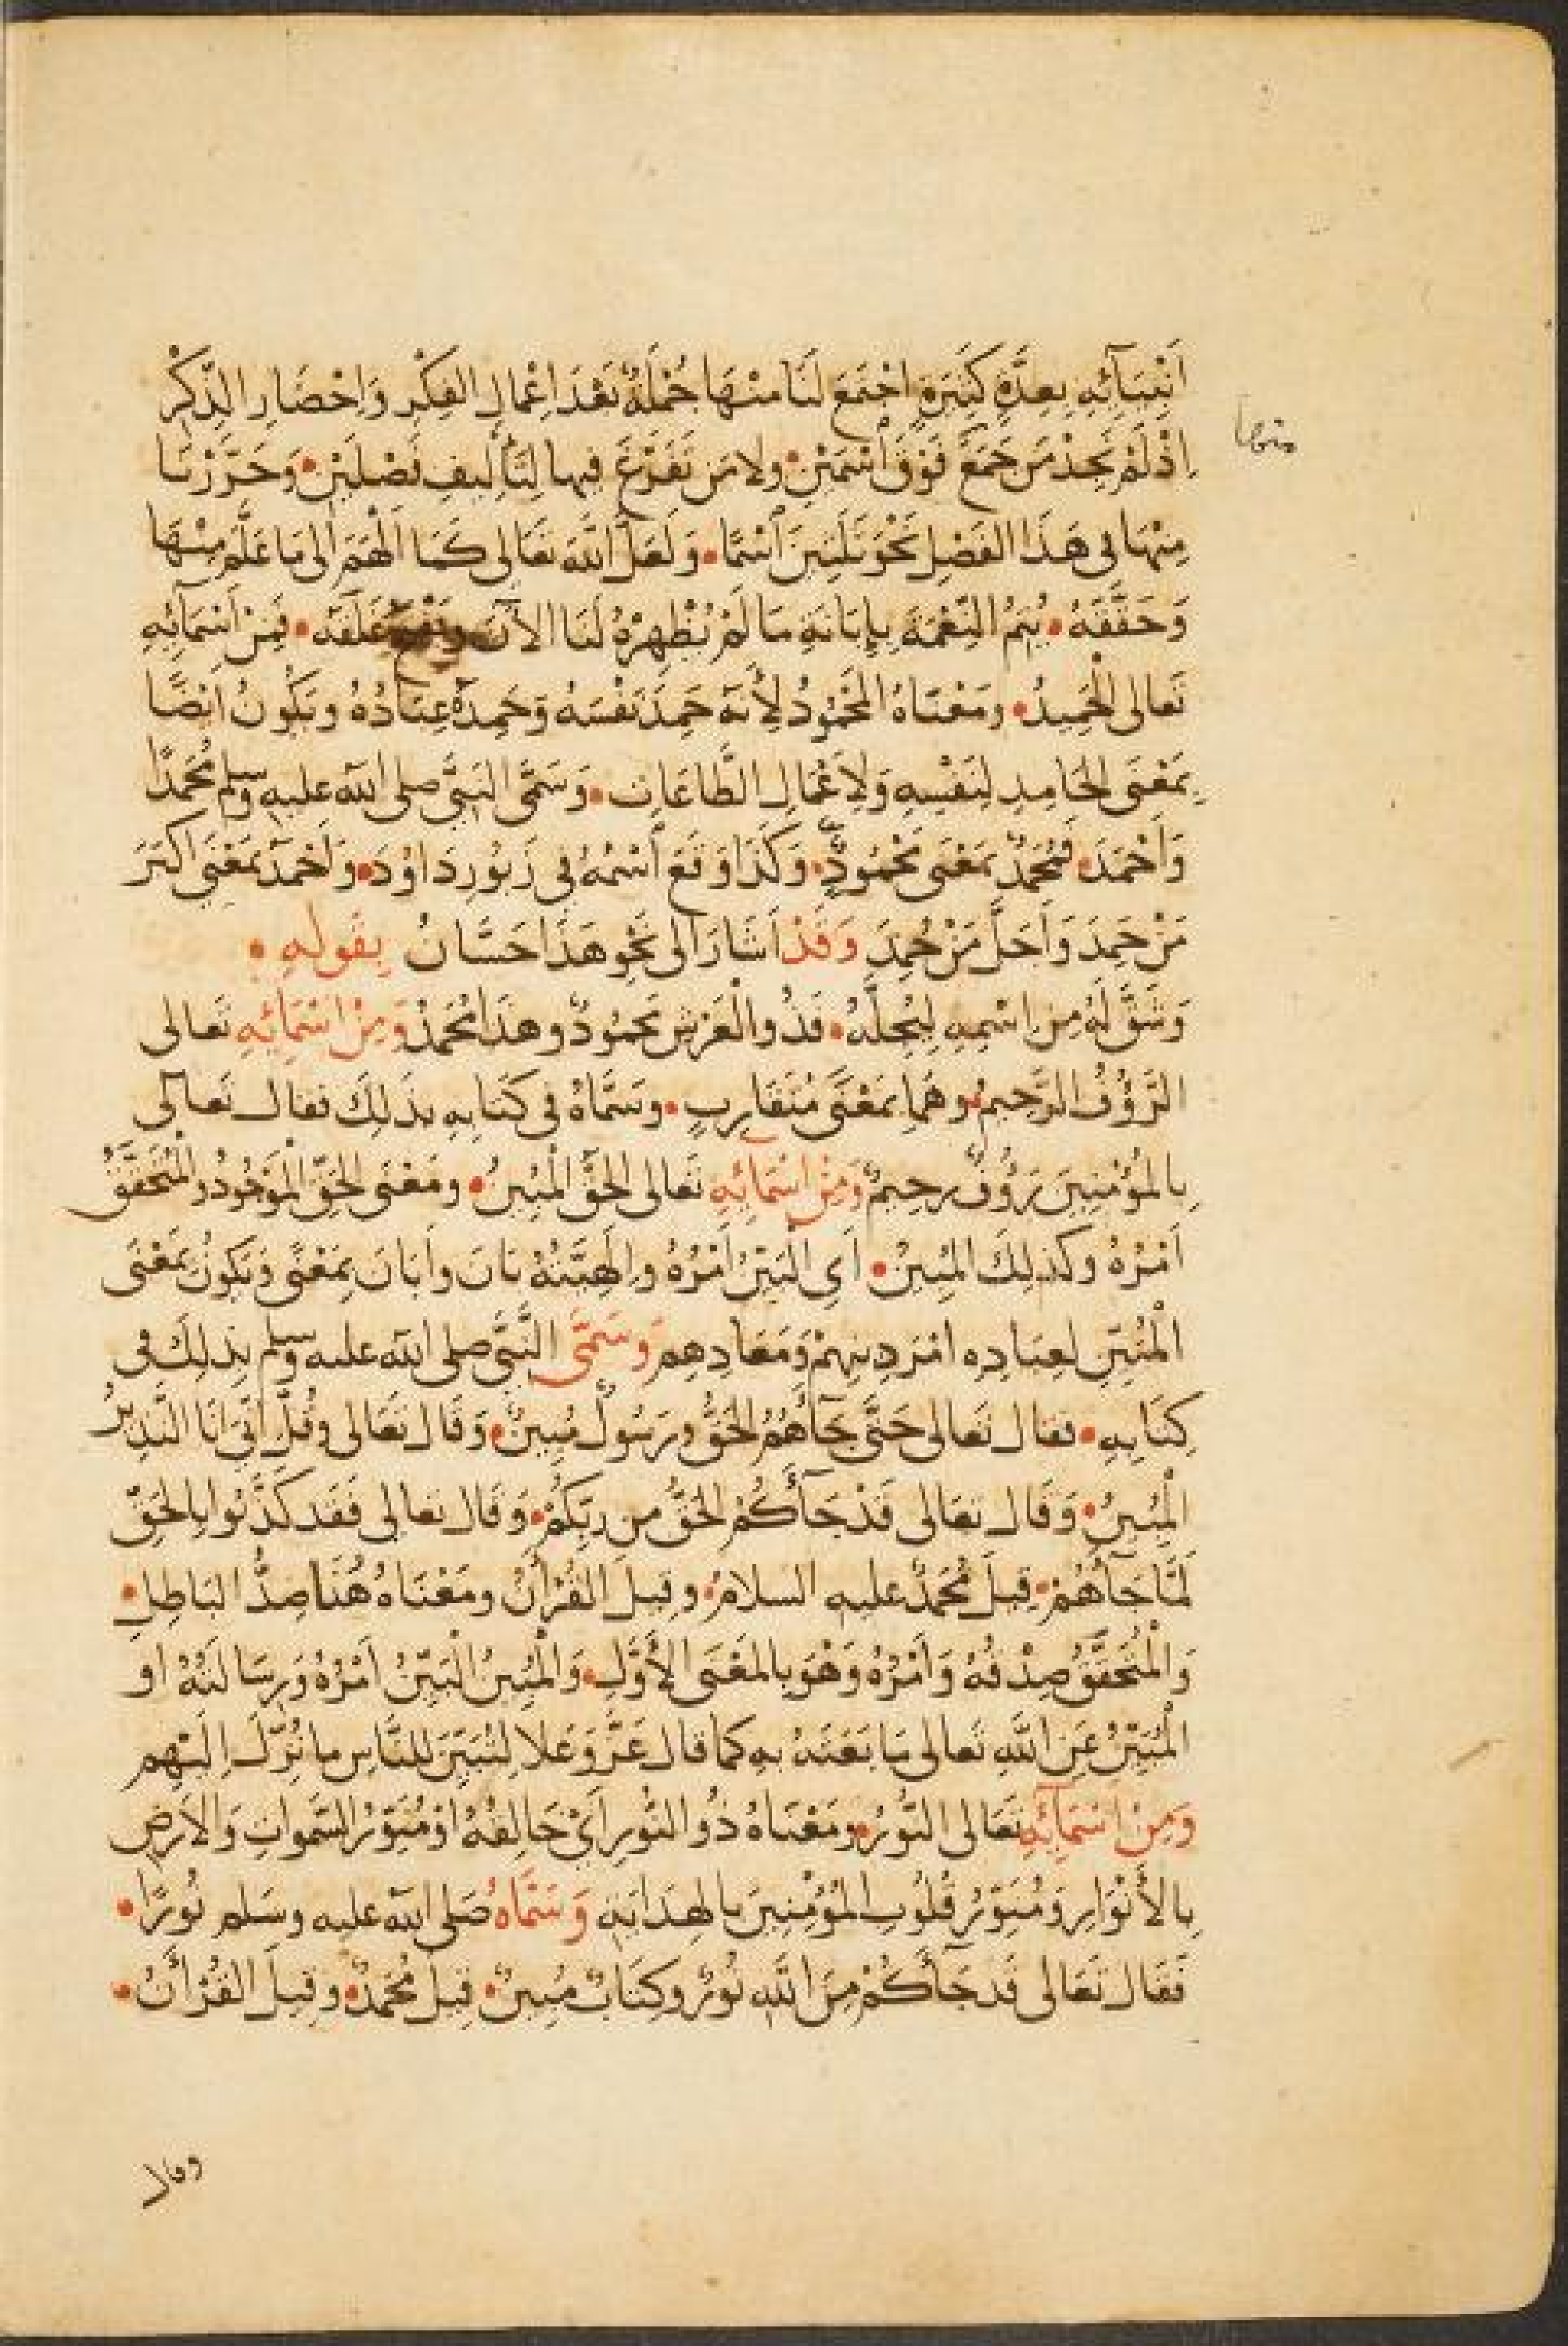 اَنْبِيَآئِهِ بِعِدَّةٍ كَثِيرَةٍ اجْتَمَعَ لَنَا مِنْهَا جُمْلَةٌ بَعْدَ اِعْمَالِ الفِكْرِ وَاِحْضَارِ الذِّكْرِ
منها
اِذْ لَمْ نَجِدْ مَن جَمَعَ فَوْقَ اسْمَيْنِ • ولا مَن تَفَرَّغَ فيها لِتَأْلِيفِ فَصْلَيْنِ • وَحَرَّرْنَا
مِنْهَا فى هَذَا الفَصْلِ نَحْوَ ثَلَثِينَ اسْمًا • وَلَعَلَّ اللَّهَ تَعَالى كَمَا اَلْهَمَ اِلى مَا عَلَّمَ مِنْهَا
وَحَقَّقَهُ • يُتِمُّ النِّعْمَةَ بِاِبَانَةِ مَا لَمْ يُظْهِرْهُ لَنَا الاَنَ غَلَقَهُ • فَمِنْ اَسْمَآئِهِ
تَعَالى الْحَمِيدُ • ومَعْنَاهُ المَحْمُودُ لِأَنَّهُ حَمِدَ نَفْسَهُ وَحَمِدَهُ عِبَادُهُ ويَكُونُ اَيْضًا
بِمَعْنَى الحَامِدِ لِنَفْسِهِ وَلِأَعْمَالِ الطَّاعَاتِ • وَسَمَّى النَبِىَّ صلى الله عليه وسلم مُحَمَّدًا
وَاَحْمَدَ • فَمُحَمَّدٌ بمَعْنَى مَحْمُودٍ • وَكَذَا وَقَعَ اسْمُهُ فى زَبُورِ دَاوُدَ • وَاَحْمَدُ بمَعْنَى اَكْبَرَ
مَنْ حَمِدَ وَاَجَلَّ مَنْ حُمِدَ وَقَدْ اَشَارَ الى نَحْوِ هَذَا حَسَّانُ بِقَولِهِ •
وَشَقَّ لَهُ مِن اسْمِهِ لِيُجِلَّهُ • فَذُو الْعَرْشِ مَحْمُودٌ وهَذَا مُحَمَّدُ وَمِنْ اَسْمَائِهِ تَعالى
الرَّؤُفُ الرَّحِيمُ • وهُمَا بمَعْنًى مُتَقَارِبٍ • وسَمَّاهُ فى كِتَابِهِ بذَلِكَ فقال تَعالى
بِالمُؤْمِنِينَ رَؤُفٌ رحِيمٌ وَمِنْ اَسْمَائِهِ تَعالى الحَقُّ الْمُبِينُ • ومَعْنَى الحَقِّ الْمَوْجُودُ والْمُتَحَقَّقُ
اَمْرُهُ وكَذلِكَ المُبِينُ • اَىِ الْبَيِّنُ اَمْرُهُ واِلَهِيَّتُهُ بَانَ واَبَانَ بمَعْنًى وَيَكُونُ بمَعْنَى
الْمُبَيِّنِ لعِبَادِه امْرَ دِينِهِمْ وَمَعَادِهِم وَسَمَّى النَّبِىَّ صلى الله عليه وسلم بِذلِكَ فى
كِتَابِهِ • فقال تَعالى حَتَّى جَآءَهُمُ الحَقُّ ورَسُولٌ مُبِينٌ • وَقَال تَعَالى وقُلْ اِنِّى اَنَا النَّذِيرُ
الْمُبِينُ • وَقَال تعَالى قَدْ جَآءَكُمُ الحَقُّ من ربِّكُمْ • وَقَال تعالى فَقَد كَذَّبُوا بِالحَقِّ
لَمَّا جَآءَهُمْ • قِيلَ مُحَمَّدٌ عليه السلامُ • وقِيلَ القُرْآنُ ومَعْنَاهُ هُنَا ضِدُّ البَاطِلِ •
وَالْمُتَحَقَّقُ صِدْقُهُ وَاَمْرُهُ وَهْوَ بِالمَعْنَى الأَوَّلِ • وَالْمُبِينُ الْبَيِّنُ اَمْرُهُ وَرِسَالَتُهُ او
الْمُبَيِّنُ عَنِ اللَّهِ تَعالى مَا بَعَثَهُ بِهِ كما قال عَزَّ وَعَلا لِتُبَيِّنَ للنَّاسِ ما نُزِّلَ اِلَيْهِم
وَمِنْ اَسْمَآئِهِ تَعَالى النُّورُ • ومَعْنَاهُ ذُو النُّورِ اَىْ خَالِقُهُ اَوْ مُنَوِّرُ السَّموَاتِ وَالاَرْضِ
بِالأَنْوَارِ وَمُنَوِّرُ قُلُوبِ المُؤْمِنِينَ بالهِدَايَةِ وَسَمَّاهُ صَلى الله عليه وسَلم نُورًا •
فَقَال تَعَالى قَد جَآءَكُمْ مِنَ اللَّهِ نُورٌ وكِتَابٌ مُبِينٌ • قِيلَ مُحَمَّدٌ • وقِيلَ القُرْآنُ •
وقال